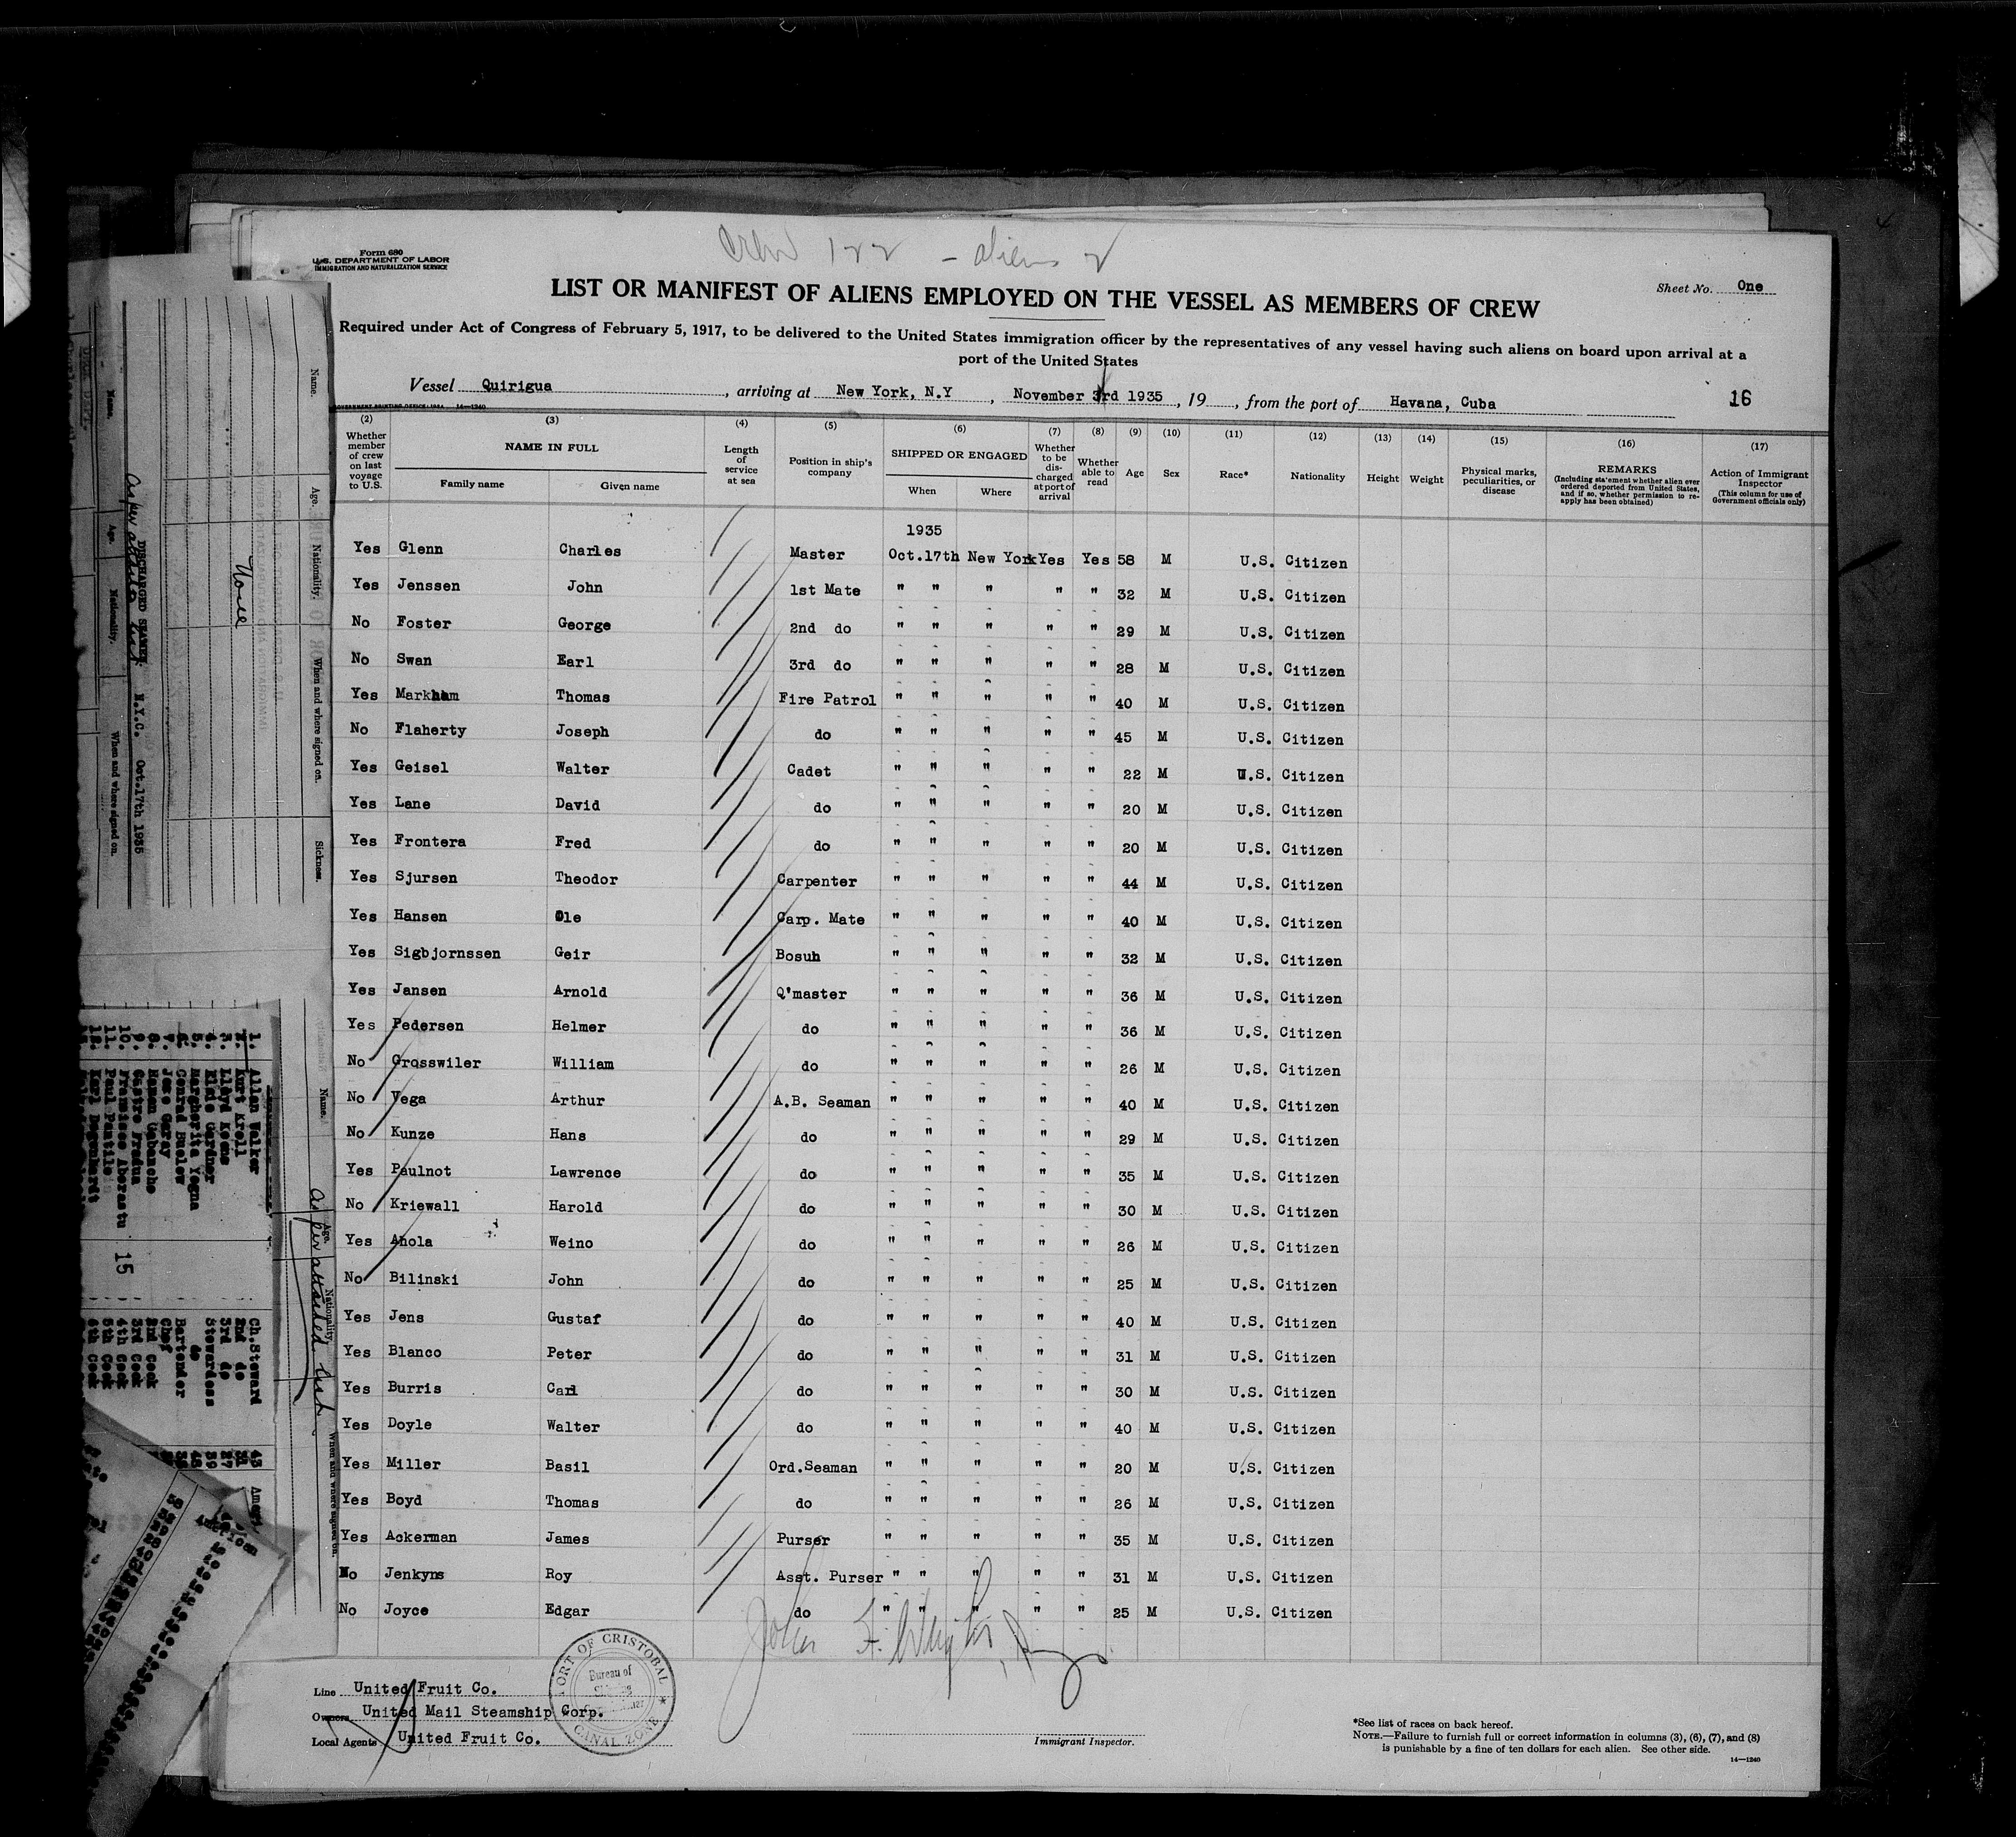 Crew 122 - aliens 2
Form 680
U.S. DEPARTMENT OF LABOR
IMMIGRATION AND NATURALIZATION SERVICE
Sheet No. One
LIST OR MANIFEST OF ALIENS EMPLOYED ON THE VESSEL AS MEMBERS OF CREW
Required under Act of Congress of February 5, 1917, to be delivered to the United States immigration officer by the representatives of any vessel having such aliens on board upon arrival at a
port of the United States
Vessel Quirigua, arriving at New York, N.Y, November 3rd 1935, 19, from the port of Havana, Cuba 16
(2) (3) (4) (5) (6) (7) (8) (9) (10) (11) (12) (13) (14) (15) (16) (17)
Whether member of crew on last voyage to U.S. NAME IN FULL Family name Given name Length of service at sea Position in ship's company SHIPPED OR ENGAGED When Where Whether to be discharged at port of arrival Whether able to read Age Sex Race* Nationality Height Weight Physical marks, peculiarities, or disease REMARKS (Including statement whether alien ever ordered deported from United States, and if so, whether permission to reapply has been obtained) Action of Immigrant Inspector (This column for use of Government officials only)
1935
Yes Glenn Charles Master Oct.17th New York Yes Yes 58 M U.S. Citizen
Yes Jenssen John 1st Mate " " " " " 32 M U.S. Citizen
No Foster George 2nd do " " " " " 29 M U.S. Citizen
No Swan Earl 3rd do " " " " " 28 M U.S. Citizen
Yes Markham Thomas Fire Patrol " " " " " 40 M U.S. Citizen
No Flaherty Joseph do " " " " " 45 M U.S. Citizen
Yes Geisel Walter Cadet " " " " " 22 M U.S. Citizen
Yes Lane David do " " " " " 20 M U.S. Citizen
Yes Frontera Fred do " " " " " 20 M U.S. Citizen
Yes Sjursen Theodor Carpenter " " " " " 44 M U.S. Citizen
Yes Hansen Ole Carp. Mate " " " " " 40 M U.S. Citizen
Yes Sigbjornssen Geir Bosuh " " " " " 32 M U.S. Citizen
Yes Jansen Arnold Q'master " " " " " 36 M U.S. Citizen
Yes Pedersen Helmer do " " " " " 36 M U.S. Citizen
No Grosswiler William do " " " " " 26 M U.S. Citizen
No Vega Arthur A.B. Seaman " " " " " 40 M U.S. Citizen
No Kunze Hans do " " " " " 29 M U.S. Citizen
Yes Paulnot Lawrence do " " " " " 35 M U.S. Citizen
No Kriewall Harold do " " " " " 30 M U.S. Citizen
Yes Ahola Weino do " " " " " 26 M U.S. Citizen
No Bilinski John do " " " " " 25 M U.S. Citizen
Yes Jens Gustaf do " " " " " 40 M U.S. Citizen
Yes Blanco Peter do " " " " " 31 M U.S. Citizen
Yes Burris Carl do " " " " " 30 M U.S. Citizen
Yes Doyle Walter do " " " " " 40 M U.S. Citizen
Yes Miller Basil Ord.Seaman " " " " " 20 M U.S. Citizen
Yes Boyd Thomas do " " " " " 26 M U.S. Citizen
Yes Ackerman James Purser " " " " " 35 M U.S. Citizen
No Jenkyns Roy Asst. Purser " " " " " 31 M U.S. Citizen
No Joyce Edgar do " " " " " 25 M U.S. Citizen
Line United Fruit Co.
Owners United Mail Steamship Corp.
Local Agents United Fruit Co.
PORT OF CRISTOBAL
Bureau of
CANAL ZONE
Immigrant Inspector.
*See list of races on back hereof.
NOTE.—Failure to furnish full or correct information in columns (3), (6), (7), and (8)
is punishable by a fine of ten dollars for each alien. See other side.
14—1240
Name. Age. Nationality. When and where signed on. Sickness.
None
DISCHARGED SEAMEN. N.Y.C. Oct.17th 1935
As per attached list
Name. Age. Nationality. When and where signed on.
1. Allen Walker Ch.Steward 43
2. Kurt Kroll 2nd do
3. Lloyd Keene 3rd do
15